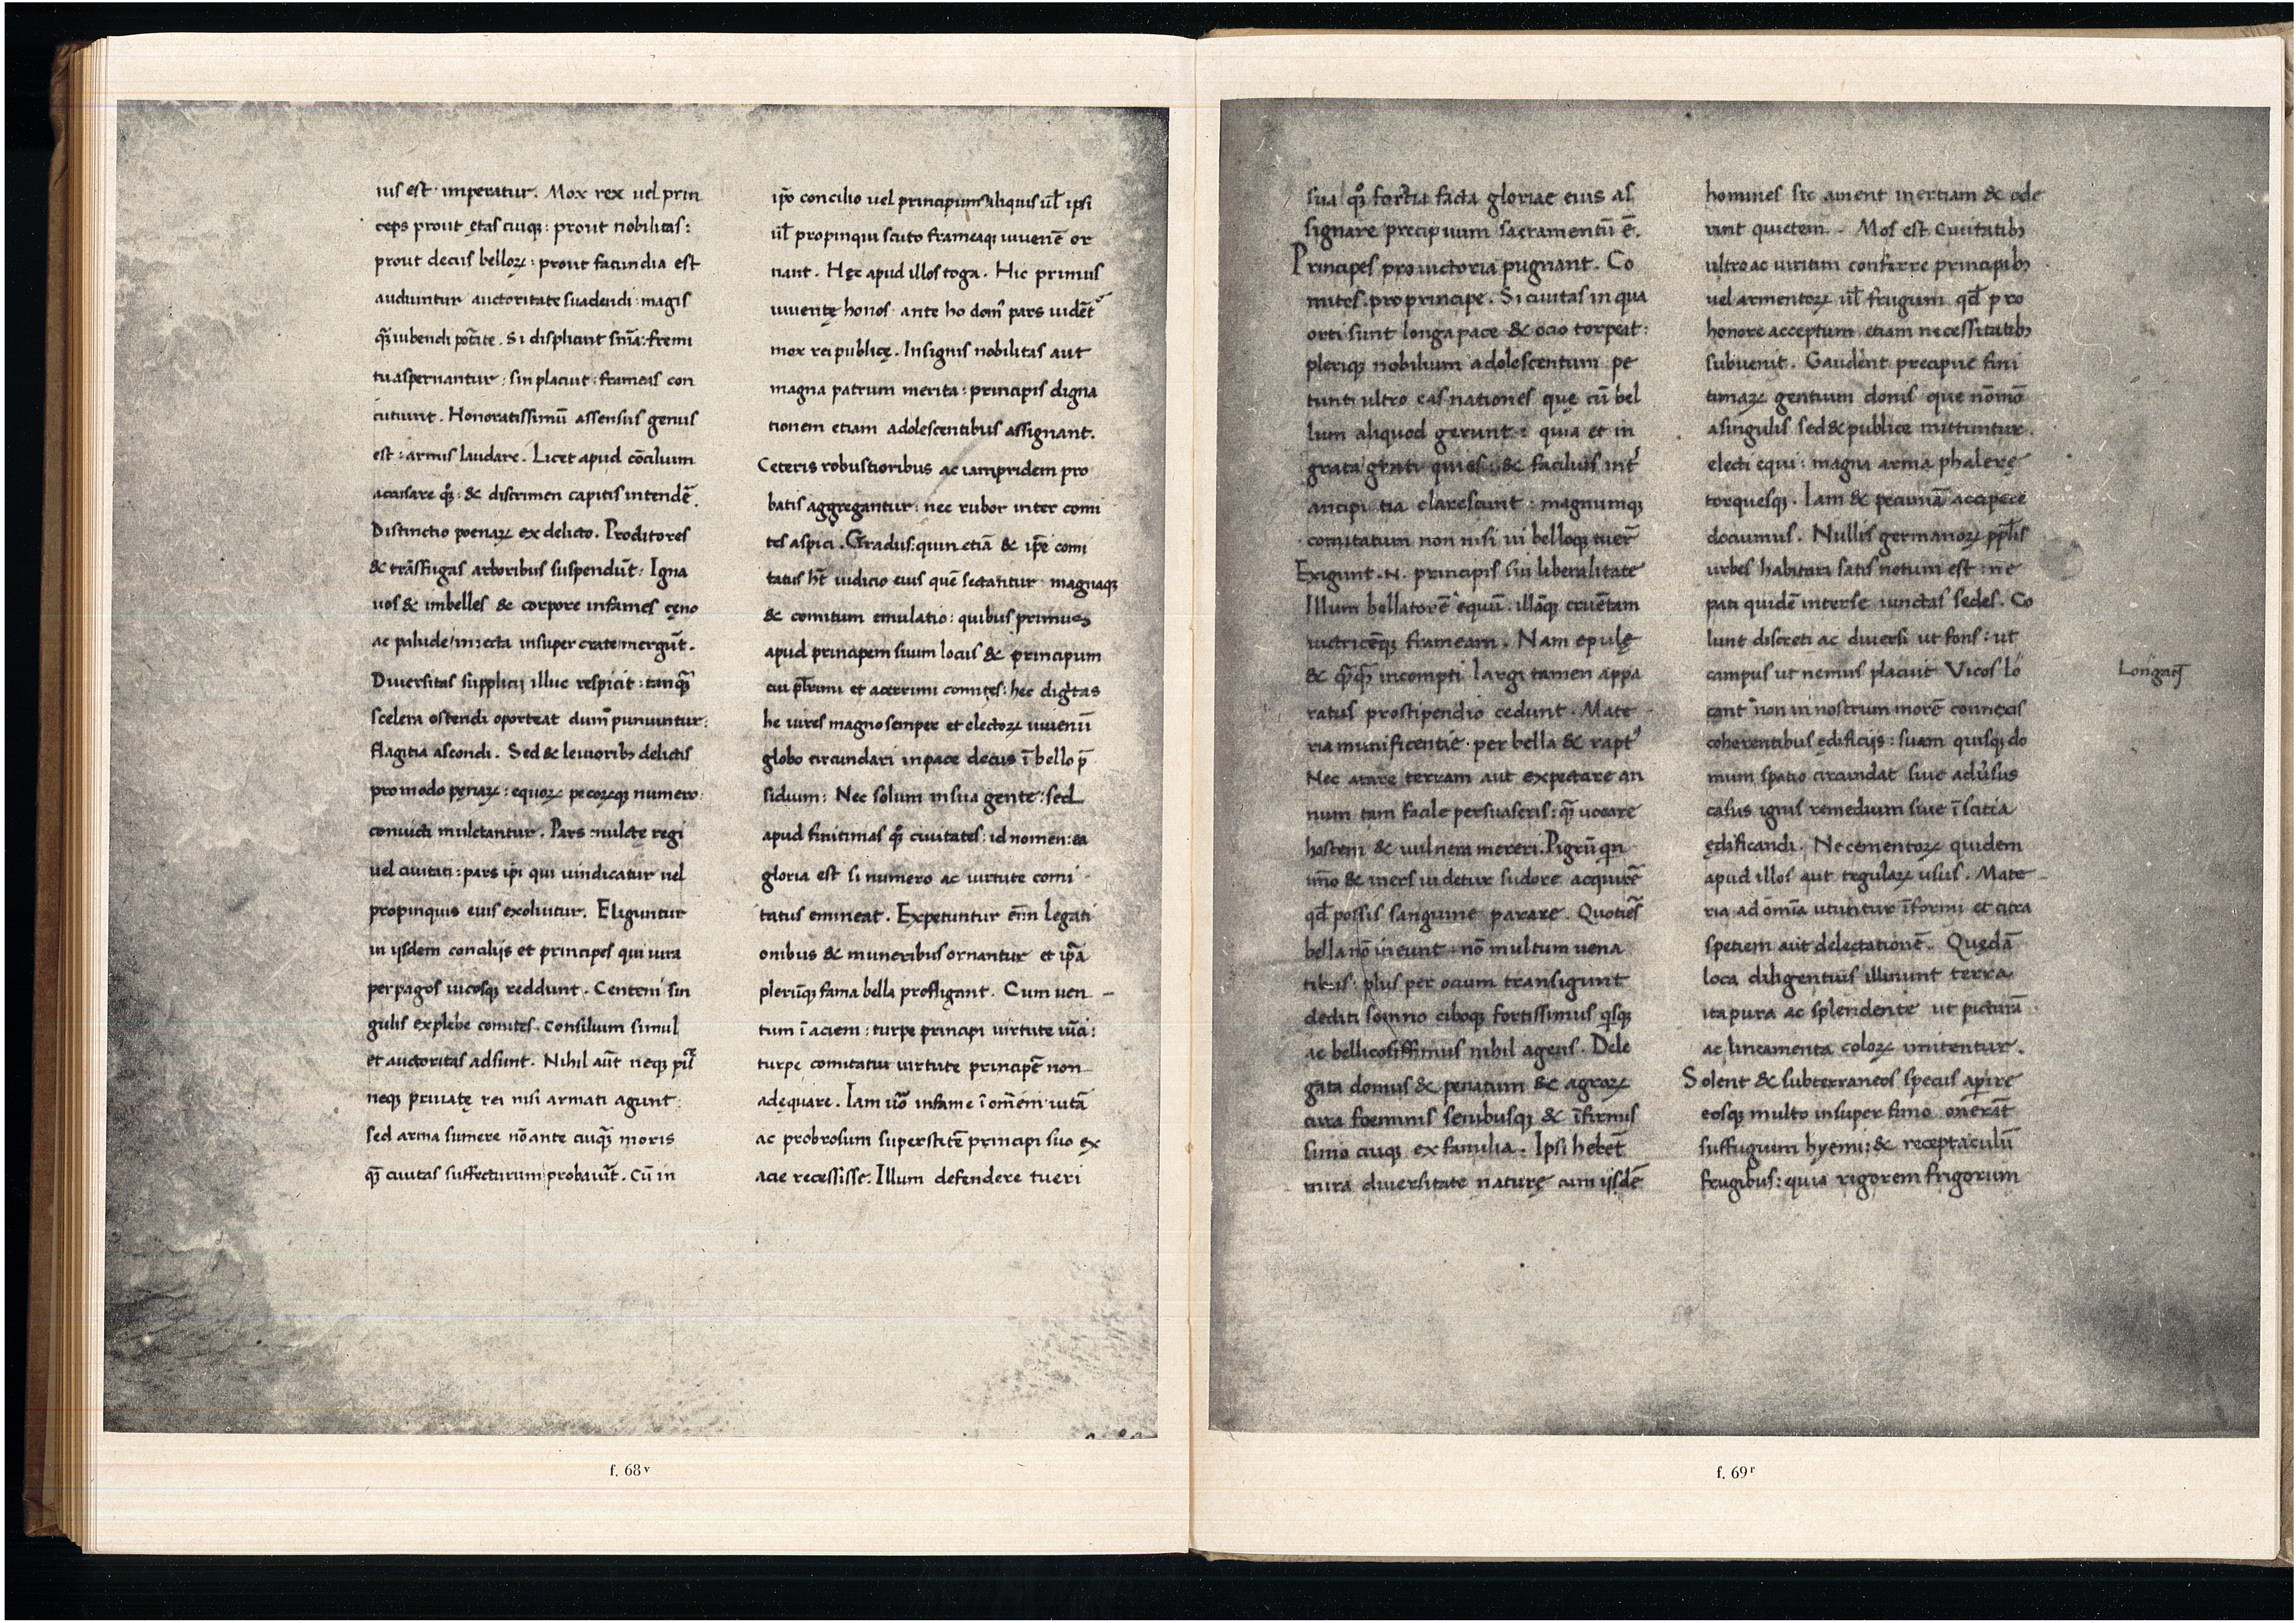 ius est imperatur. Mox rex uel prin
ceps prout ętas cuiq;: prout nobilitas:
prout decus belloꝝ: prout facundia est
audiuntur auctoritate suadendi magis
ꝗ̃ iubendi potate. Si displicuit snĩa: fremi
tu aspernantur: sin placuit: frameas con
cutiunt. Honoratissimũ assensus genus
est: armis laudare. Licet apud cõcilium
accusare qȝ: & discrimen capitis intendẽ.
Distinctio poenaꝝ ex delicto. Proditores
& trãsfugas arboribus suspendũt: Igna
uos & imbelles & corpore infames cęno
ac palude iniecta insuper crate mergũt.
Diuersitas supplicij illuc respicit: tanꝗ̃
scelera ostendi oporteat dum puniuntur:
flagitia abscondi. Sed & leuiorib; delictis
pro modo pęnaꝝ: equoꝝ pecoꝝq; numero:
conuicti mulctantur. Pars mulctę regi
uel ciuitati: pars ipi qui uindicatur uel
propinquis eius exoluitur. Eliguntur
in ijsdem concilijs et principes qui iura
per pagos uicosq; reddunt. Centeni sin
gulis ex plebe comites. consilium simul
et auctoritas adsunt. Nihil aũt neq; puł
neq; priuatę rei nisi armati agunt:
sed arma sumere nõ ante cuiꝗ̃ moris
ꝗ̃ ciuitas suffecturum probauit̃. Cũ in
ipõ concilio uel principum aliquis uł ipsi
uł propinqui scuto frameaq; iuuenẽ or
nant. Hęc apud illos toga. Hic primus
iuuentę honos ante ho domꝰ pars uidẽt
mox rei publicę. Insignis nobilitas aut
magna patrum merita: principis digna
tionem etiam adolescentibus assignant.
Ceteris robustioribus ac iampridem pro
batis aggregantur: nec rubor inter comi
tes aspici. Gradus: quin etiã & ipẽ comi
tatus ht̃ iudicio eius quẽ sectantur magnaq;
& comitum emulatio: quibus primus
apud principem suum locus & principum
cui płrimi et acerrimi comites: hec digtas
he uires magno semper et electoꝝ iuuenũ
globo circundari in pace decus ĩ bello p̃
sidium: Nec solum in sua gente: sed
apud finitimas qȝ ciuitates: id nomen: ea
gloria est si numero ac uirtute comi
tatus emineat. Expetuntur eñm legati
onibus & muneribus ornantur et ipã
plerũq; fama bella profligant. Cum uen
tum ĩ aciem: turpe principi uirtute uĩci:
turpe comitatui uirtute principẽ non
adequare. Iam uõ infame ĩ om̃em uitã
ac probrosum superstitẽ principi suo ex
acie recessisse. Illum defendere tueri
f. 68ᵛ
sua qȝ fortia facta gloriae eius as
signare precipuum sacramentũ ẽ.
Principes pro uictoria pugnant. Co
mites pro principe. Si ciuitas in qua
orti sunt longa pace & ocio torpeat:
pleriq; nobilium adolescentum pe
tunt ultro eas nationes que cũ bel
lum aliquod gerunt: quia et in
grata genti quies: & facilius int̃
ancipitia clarescunt: magnumq;
comitatum non nisi ui belloq; tuer̃
Exigunt .N. principis sui liberalitate
Illum bellatorẽ equũ: illãq; cruẽtam
uictricẽq; frameam. Nam epulę
& ꝗ̃ꝗ̃ incompti largi tamen appa
ratus pro stipendio cedunt. Mate
ria munificentie per bella & raptꝰ
Nec arare terram aut expectare an
num tam facile persuaseris: ꝗ̃ uocare
hostem & uulnera mereri. Pigrũ qn
imo & iners uidetur sudore acquirẽ
qđ possis sanguine parare. Quotiẽs
bella nõ ineunt nõ multum uena
tibus: plus per ocium transigunt
dediti somno ciboq; fortissimus qsq;
ac bellicosissimus nihil agens. Dele
gata domus & penatum & agroꝝ
cura foeminis senibusq; & ĩfirmis
simo cuiq; ex familia. Ipsi hebet̃
mira diuersitate naturę cum ijsdẽ
homines sic ament inertiam & ode
rint quietem. Mos est ciuitatib;
ultro ac uiritim conferre principib;
uel armentoꝝ uł frugum qđ pro
honore acceptum etiam necessitatib;
subuenit. Gaudent precipue fini
timaꝝ gentium donis que nõ mõ
a singulis sed & publice mittuntur.
electi equi: magna arma phalerę
torquesq;. Iam & pecuniã accipere
docuimus. Nullis germanoꝝ ppłis
urbes habitari satis notum est: ne
pati quidẽ inter se iunctas sedes. Co
lunt discreti ac diuersi ut fons: ut
campus ut nemus placuit Vicos lo
cant non in nostrum morẽ connexis
coherentibus ędificijs: suam quisq; do
mum spatio circundat siue aduersus
casus ignis remedium siue ĩscitia
ędificandi. Ne cementoꝝ quidem
apud illos aut tegulaꝝ usus. Mate
ria ad om̃ia utuntur ĩformi et citra
spetiem aut delectationẽ. Quędã
loca diligentius illinunt terra
ita pura ac splendente ut picturã
ac lineamenta coloꝝ imitentur.
Solent & subterraneos specus aperire
eosq; multo insuper fimo onerãt
suffugium hyemi: & receptaculũ
frugibus: quia rigorem frigorum
f. 69ʳ